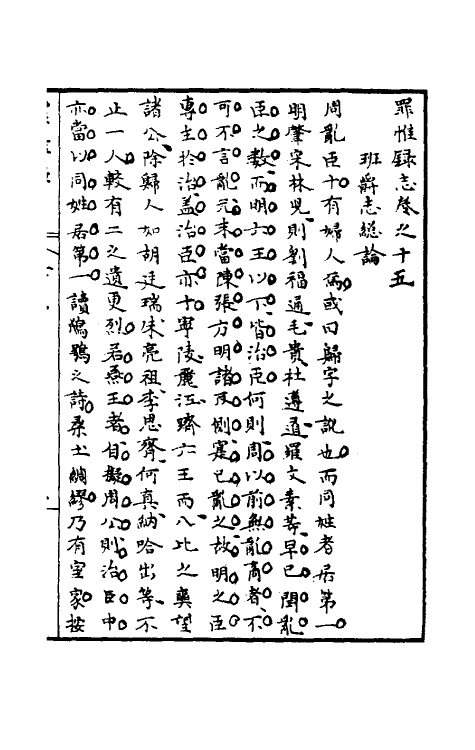 罪惟錄志卷之十五
班爵志總論
周亂臣十有婦人焉或曰歸字之說也而同姓者居第一
明肇宋林兒則劉福通毛貴杜遵道羅文素等早已開亂
臣之數而明六王以下皆治臣何則周以前無亂商者不
可不言亂元末當陳張方明諸反側寔已亂之故明之臣
專主於治盖治臣亦十寧陵麗江躋六王而八比之奭望
諸公除歸人如胡廷瑞朱亮祖李思齊何真納哈出等不
止一人較有二之遺更烈若燕王者自擬周公則治臣中
亦當以同姓居第一讀鴟鴞之詩桑土綢繆乃有室家按